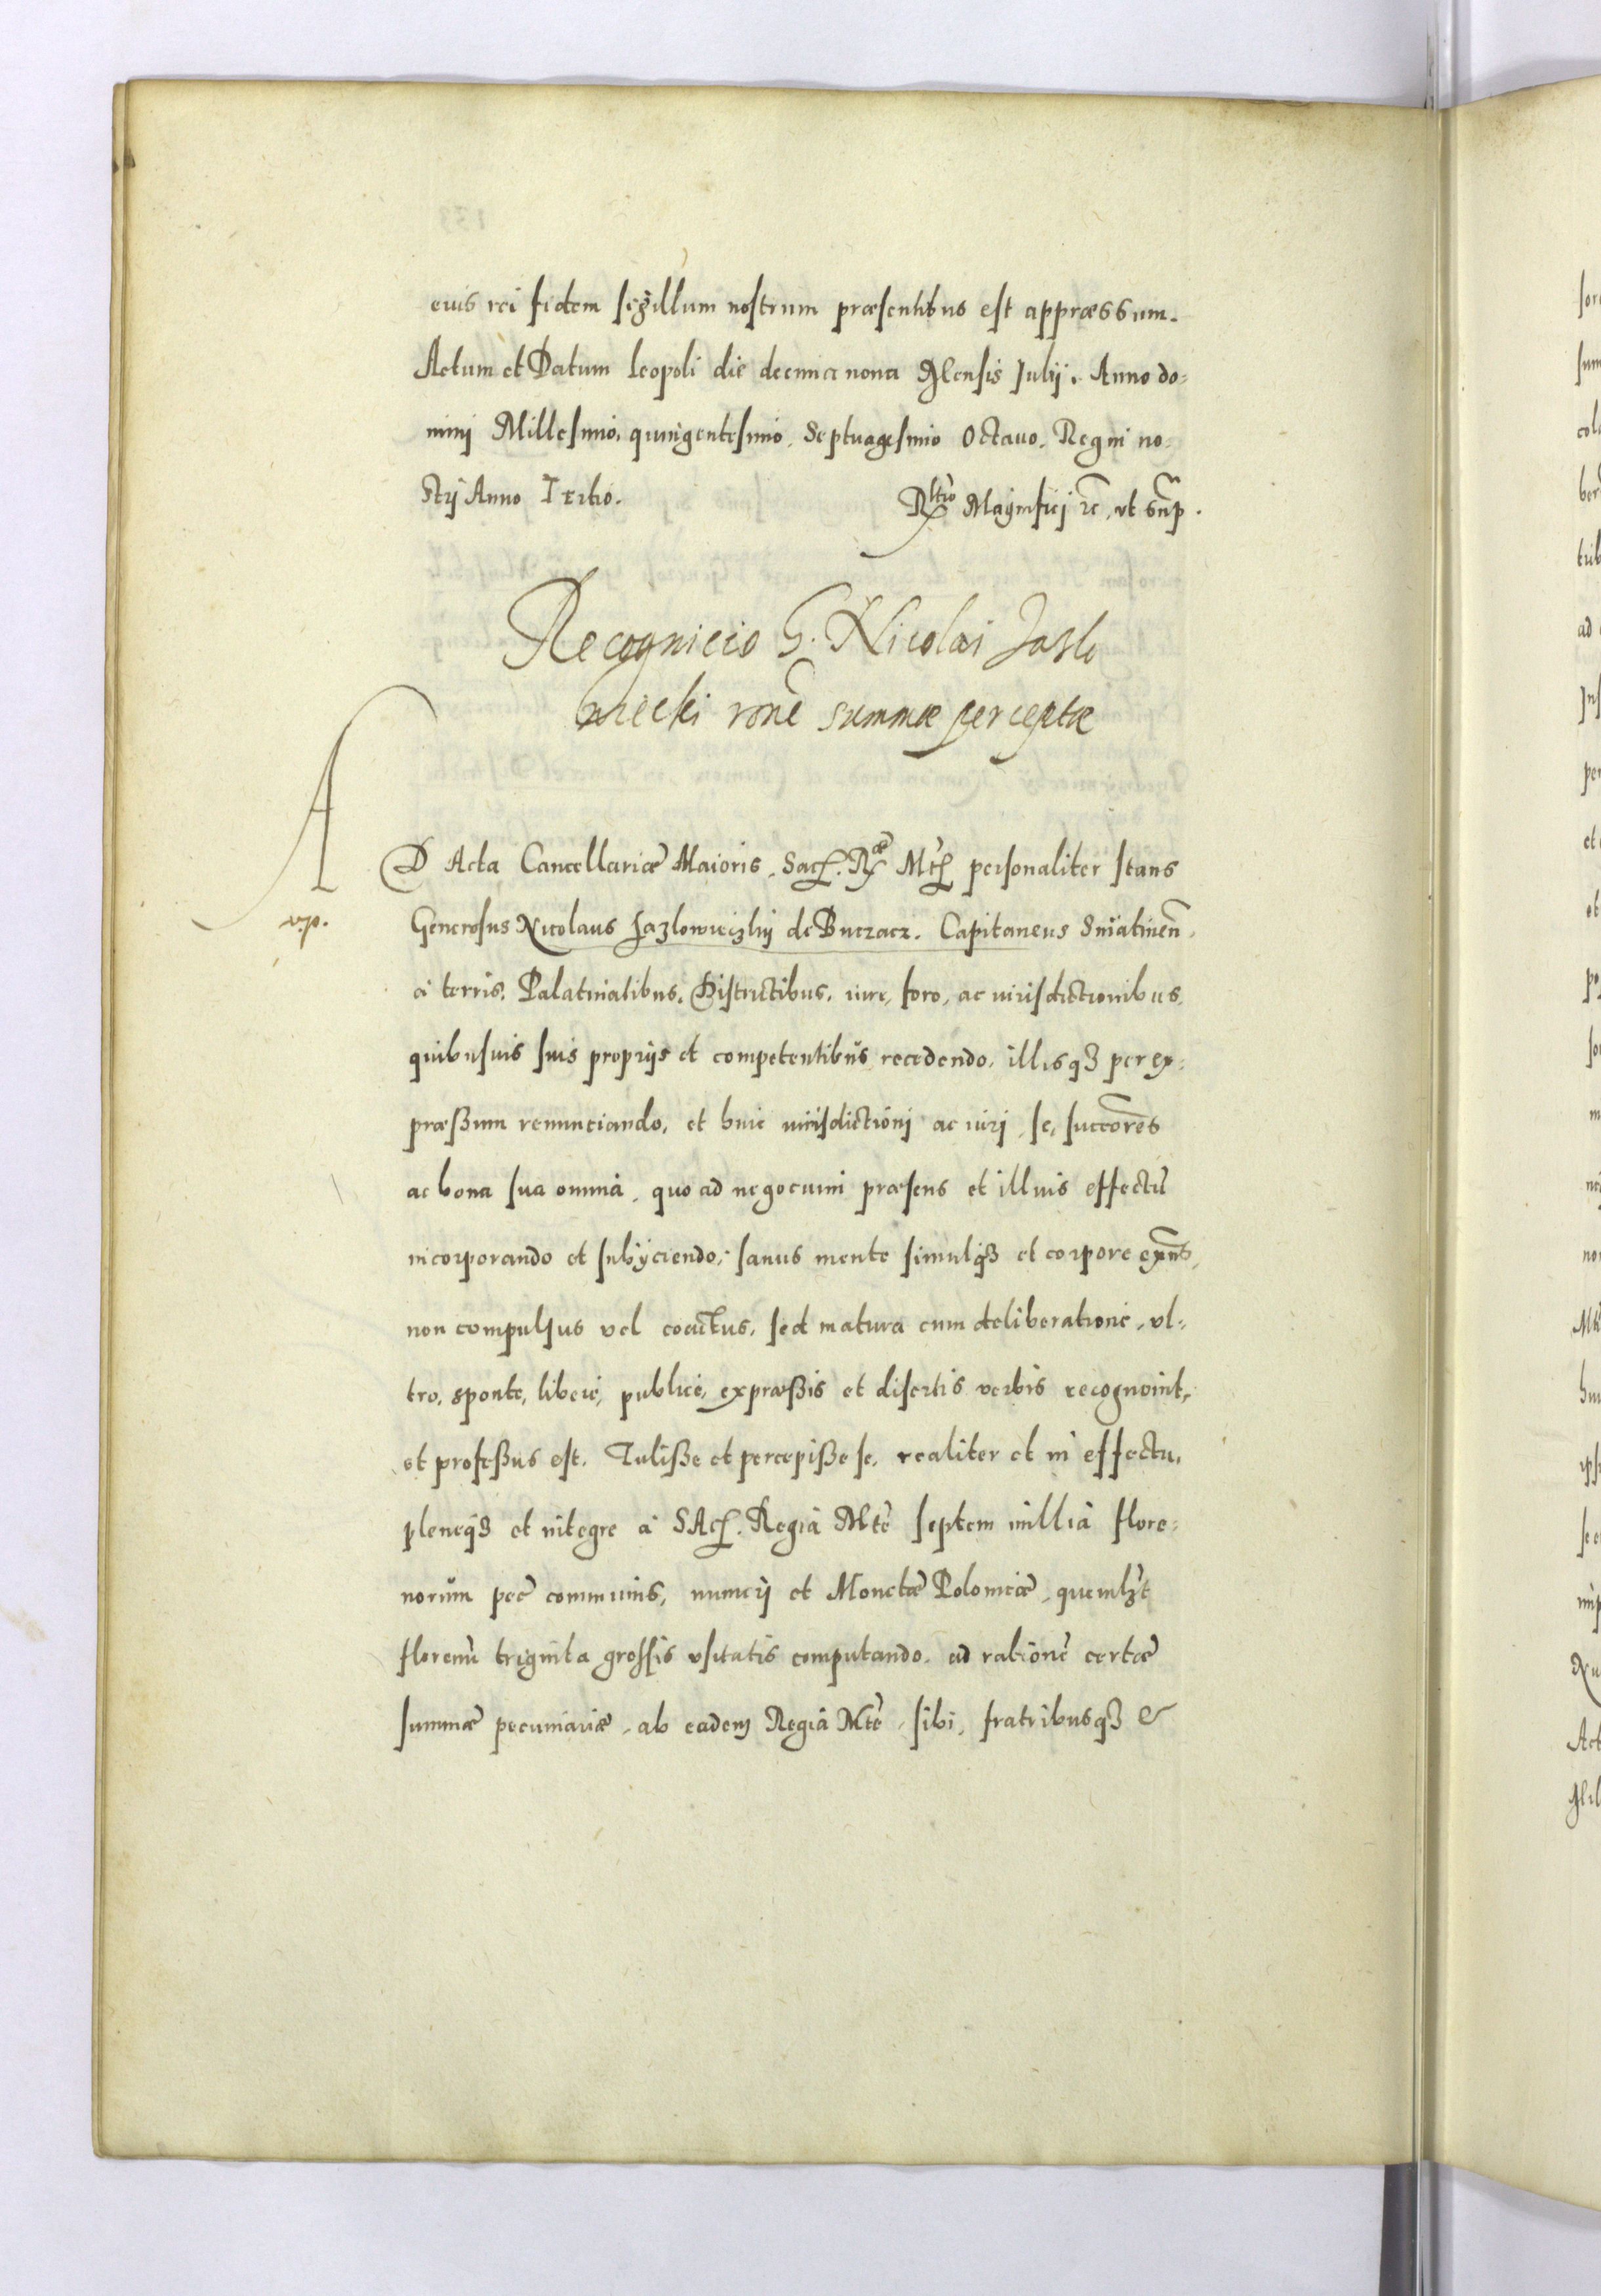 cuis rei fidem sigillum nostrum præsentibus est appræssum.
Actum et Datum Leopoli die decima nona Mensis Julij. Anno do-
minj Millesimo, quingentesimo, Septuagesimo Octauo. Regni no-
strj Anno Tertio.
Rltio Magnificj rc, vt sup.
Recognicio G. Nicolai Jazlo
wiecki rone summæ perceptæ
AD Acta Cancellariæ Maioris. Sacr. Ræ Mtis personaliter stans
Generosus Nicolaus Jazlowieczkij de Buczacz. Capitaneus Sniatinen.
à terris. Palatinatibus, Districtibus, iure, foro, ac iurisdictionibus
quibusuis suis proprijs et competentibus recedendo, illisq3 per ex-
præßum renunciando, et huic iurisdictionj ac iurj, se, succores
ac bona sua omnia, quo ad negocium præsens et illius effectu
incorporando et subijciendo, sanus mente simulq3 et corpore exns,
non compulsus vel coactus, sed matura cum deliberatione, vl-
tro, sponte, liberè, publicè, expræßis et disertis verbis recognouit,
et profeßus est. Tuliße et percepiße se, realiter et in effectu,
pleneq3 et integre à SAcr. Regia Mte septem millia flore-
norum pec communis, numerj et Monetæ Polonicæ, quemlzt
florenu triginta grossis vsitatis computando, ad ratione certæ
summæ pecuniariæ, ab eadem Regia Mte, sibi, fratribusq3 &